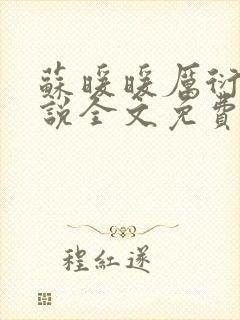 蘇暖暖厲衍
說全文免費
程紅遂